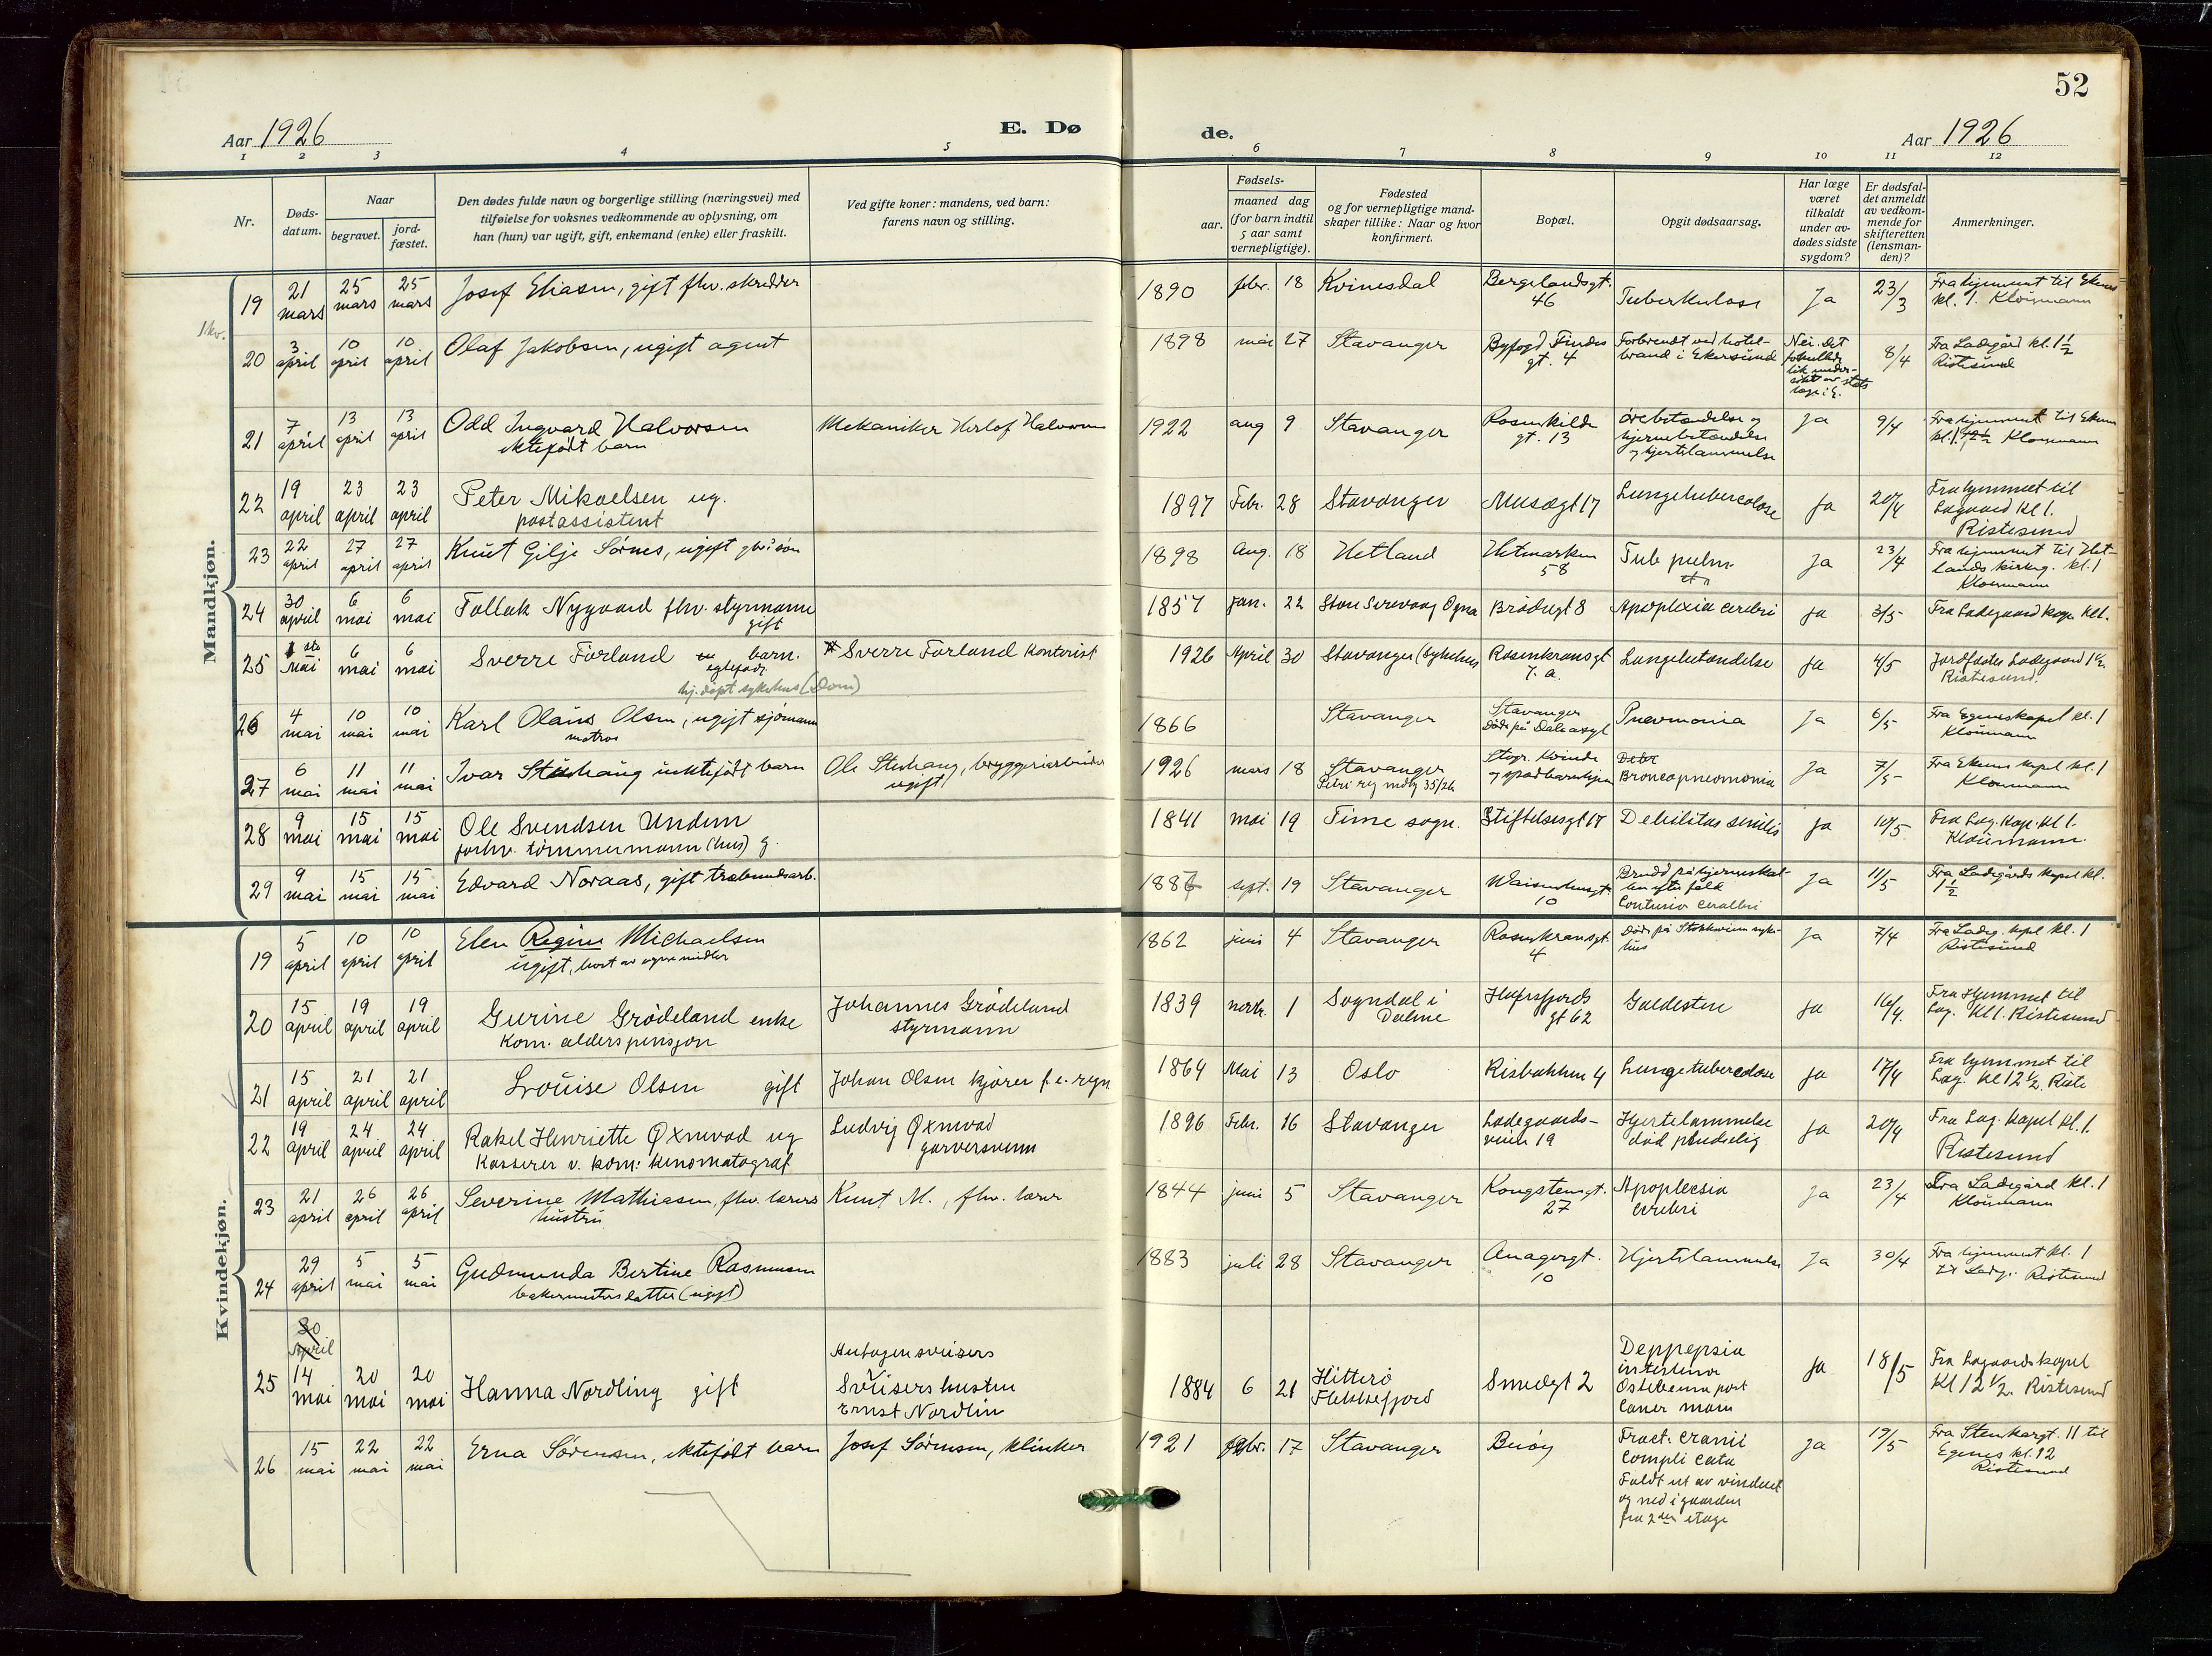 52
Aar 1926
E. Dø
de.
Aar 1926
1 2 3 4 5 6 7 8 9 10 11 12
Nr.
Døds-
datum.
Naar
begravet.
jord-
fæstet.
Den dødes fulde navn og borgerlige stilling (næringsvei) med
tilføielse for voksnes vedkommende av oplysning, om
han (hun) var ugift, gift, enkemand (enke) eller fraskilt.
Ved gifte koner: mandens, ved barn:
farens navn og stilling.
Fødsels-
aar.
maaned dag
(for barn indtil
5 aar samt
vernepligtige).
Fødested
og for vernepligtige mand-
skaper tillike: Naar og hvor
konfirmert.
Bopæl.
Opgit dødsaarsag.
Har læge
været
tilkaldt
under av-
dødes sidste
sygdom?
Er dødsfal-
det anmeldt
av vedkom-
mende for
skifteretten
(lensman-
den)?
Anmerkninger.
Mandkjøn.
19 21 mars 25 mars 25 mars Josef Eliasen, gift fhv. skredder 1890 febr. 18 Kvinesdal Bergelandsgt. 46 Tuberkulose Ja 23/3 Fra hjemmet til
kl. 1. Kloumann
20 3 april 10 april 10 april Olaf Jakobsen, ugift agent 1898 mai 27 Stavanger Byfogd gt. 4 Forbrendt ved hotel-
brand i Ekersund Nei. Det 8/4 Fra Ladegård kl. 1 1/2
Ristesund
21 7 april 13 april 13 april Odd Ingvard Halvorsen
ektefødt barn Mekaniker Herlof Halvorsen 1922 aug 9 Stavanger Rosenkilde gt. 13 ørebetændelse og
hjernebetændelse
og hjertelammelse Ja 9/4 Fra hjemmet til
kl. 1 Kloumann
22 19 april 23 april 23 april Peter Mikaelsen ug.
postassistent 1897 Febr. 28 Stavanger Musægt 17 Lungetubercolose Ja 20/4 Fra hjemmet til
Lagaard kl 1.
Ristesund
23 22 april 27 april 27 april Knut Gilje Sørnes, ugift 1898 Aug. 18 Hetland Hetmarken 58 Tub pulm Ja 23/4 Fra hjemmet til Het-
lands kirkeg. kl. 1
Kloumann
24 30 april 6 mai 6 mai Tollak Nygaard fhv. styrmann
gift 1857 jan. 22 Ogna Brødregt 8 Apoplexia cerebri ja 3/5 Fra Ladegaard kap. kl 1.
25 1 ste mai 6 mai 6 mai Sverre Førland barn.
hj. døpt sykehus (Dom) Sverre Førland Kontorist 1926 April 30 Stavanger (Sykehus Rosenkransgt 7. a. Lungebetændelse ja 4/5 Jordfæstes Ladegaard
Ristesund.
26 4 mai 10 mai 10 mai Karl Olaus Olsen, ugift sjømann
matros 1866 Stavanger Stavanger
Døde på Pneumonia Ja 6/5 Fra Egeneskapel kl. 1
Kloumann
27 6 mai 11 mai 11 mai Ivar Stenhaug uektefødt barn Ole Stenhaug, bryggeriarbeider
ugift 1926 mars 18 Stavanger Broncopneumonia Ja 7/5 kapel kl. 1
Kloumann
28 9 mai 15 mai 15 mai Ole Svendsen Undem
forhv. tømmermann (hus) g. 1841 mai 19 Time sogn. Stiftelsesgt 17 Debilitas senilis ja 10/5 Fra Lag. Kap. kl 1.
Kloumann.
29 9 mai 15 mai 15 mai Edvard Noraas, gift 1886 sept. 19 Stavanger Waisenhusgt. 10 Brudd på hjerneskal-
len efter fald
Contusio cerebri Ja 11/5 Fra Ladegårds kapel kl.
1 1/2
Kvindekjøn.
19 5 april 10 april 10 april Elen Regine Michaelsen
ugift, levet av egne midler 1862 juni 4 Stavanger Rosenkransgt. 4 Døde på Stokholm syke-
hus Ja 7/4 Fra Ladeg. kapel kl. 1
Ristesund
20 15 april 19 april 19 april Gurine Grødeland enke
Kom. alderspensjon Johannes Grødeland
styrmann 1839 1 Sogndal i
Dalene Hafrsfjords gt 62 Galdesten ja 16/4. Fra Hjemmet til
Lag. Kl 1. Ristesund
21 15 april 21 april 21 april Lovise Olsen gift Johan Olsen kjører f. e. regn 1864 Mai 13 Oslo Risbakken 4 Lungetubercolose ja 17/4 Fra hjemmet til
Lag. kl 12 1/2. Riste
22 19 april 24 april 24 april Rakel Henriette Øxnevad ug
Kasserer v. kom: kinomatograf Ludvig Øxnevad
garversvenn 1896 Febr. 16 Stavanger Ladegaards-
veien 19 Hjertelammelse
død pludselig ja 20/4 Fra Lag. kapel kl. 1.
Ristesund
23 21 april 26 april 26 april Severine Mathiasen, fhv. lærers
hustru Knut M., fhv. lærer 1844 juni 5 Stavanger Kongstensgt. 27 Apoplecsia
cerebri ja 23/4 Fra Ladegård kl. 1
Kloumann
24 29 april 5 mai 5 mai Gudmunda Bertine Rasmussen
bakermesters datter (ugift) 1883 juli 28 Stavanger Anagergt. 10 Hjertelammelse Ja 30/4 Fra hjemmet kl. 1
til Ladeg. Ristesund
30 April
25 14 mai 20 mai 20 mai Hanna Nordling gift Autogensveisers
Sveisers hustru
Ernst Nordlin 1884 6 21 Hitterø
Flekkefjord Smedgt 2 Deppepsia
ja 18/5 Fra Lagaardskapel
Kl 12 1/2. Ristesund
26 15 mai 22 mai 22 mai Erna Sørensen, ektefødt barn Josef Sørensen, klinker 1921 febr. 17 Stavanger Buøy Fract. cranii
complicata
Faldt ut av vinduet
og ned i gaarden
fra 2den etage ja 19/5 Fra Stenkargt. 11 til
Egenes kl. 12
Ristesund